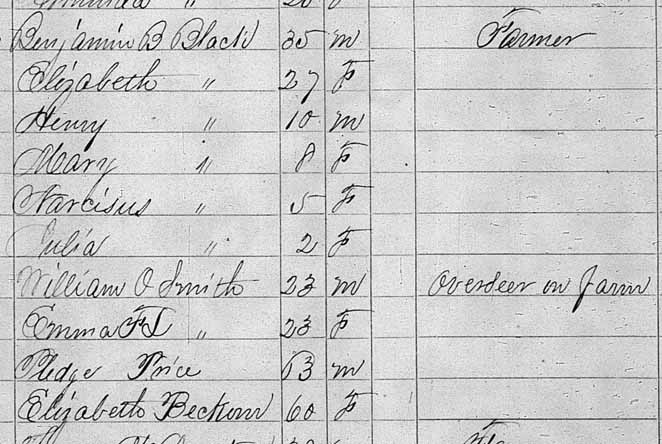 Benjamin B Black 35 m Farmer
Elizabeth " 27 F
Henry " 10 m
Mary " 8 F
Narcisus " 5 F
Julia " 2 F
William O Smith 23 m Overseer on farm
Emma F L " 23 F
Pledge Price 63 m
Elizabeth Beckom 60 F